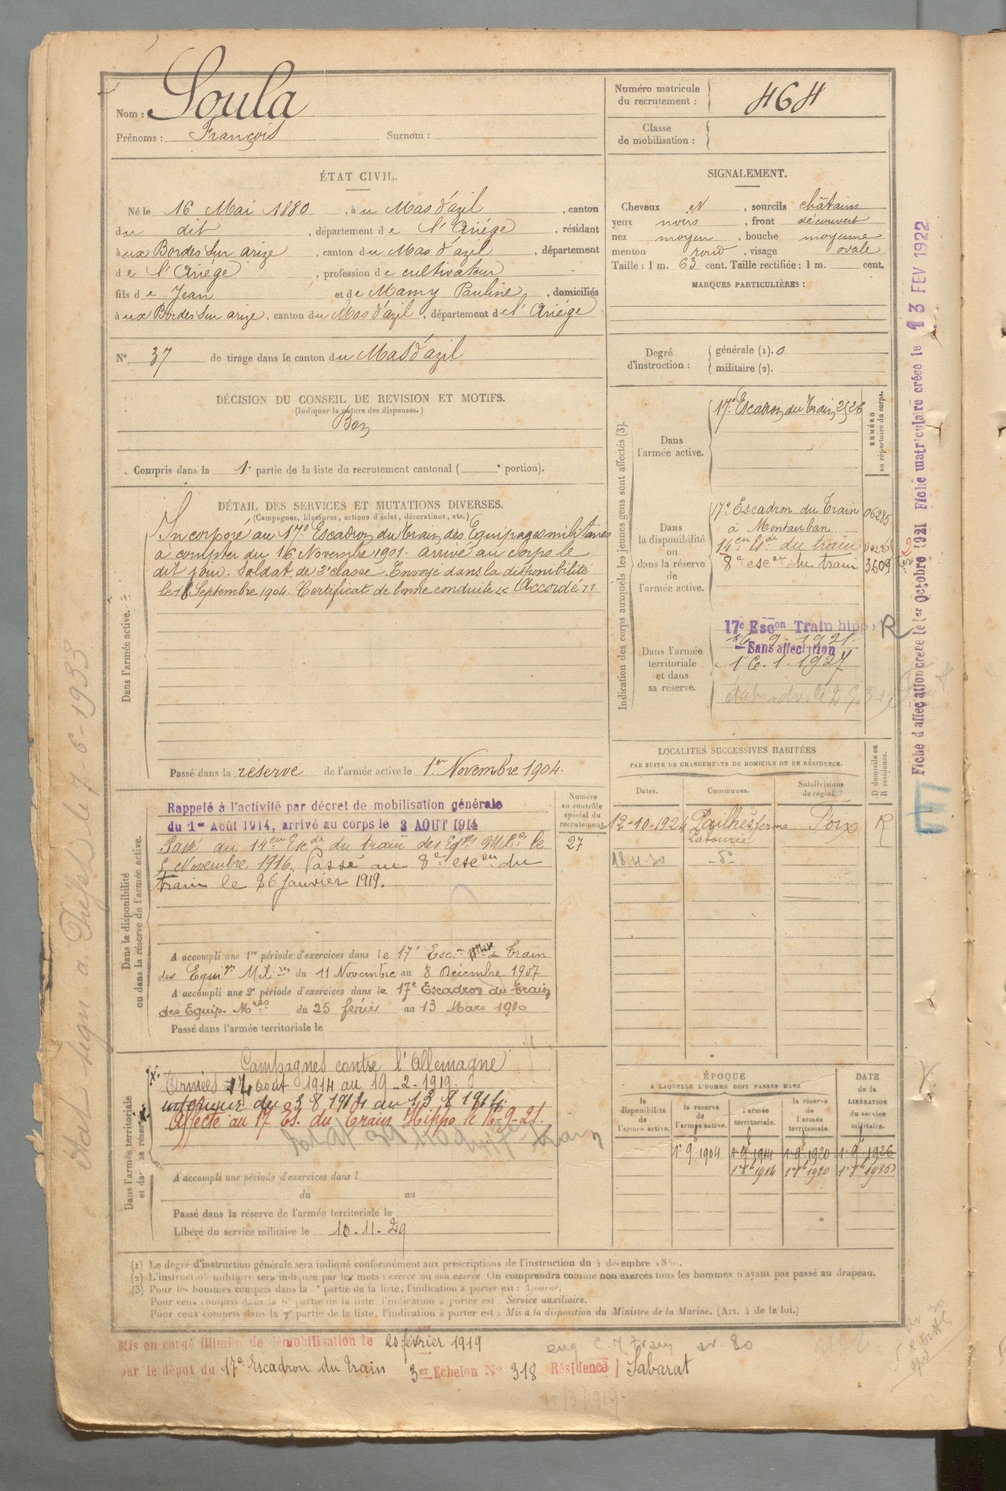 Nom : Soula
Prénoms : François Surnom :
Numéro matricule du recrutement : 464
Classe de mobilisation :
ÉTAT CIVIL.
Né le 16 Mai 1880, à u Mas d'azil, canton
du dit, département de l'Ariège, résidant
à ux Bordes sur arize, canton du Mas d'azil, département
de l'Ariège, profession de cultivateur
fils de Jean et de Mamy Pauline, domiciliés
à ux Bordes sur arize, canton du Mas d'azil, département de l'Ariège
N° 37 de tirage dans le canton du Mas d'azil
SIGNALEMENT.
Cheveux N, sourcils châtains
yeux noirs, front découvert
nez moyen, bouche moyenne
menton rond, visage ovale
Taille : 1 m. 63 cent. Taille rectifiée : 1 m. cent.
MARQUES PARTICULIÈRES :
Degré d'instruction : générale (1). 0
militaire (2).
DÉCISION DU CONSEIL DE REVISION ET MOTIFS.
(Indiquer la nature des dispenses.)
Bon
Compris dans la 1e partie de la liste du recrutement cantonal ( e portion).
DÉTAIL DES SERVICES ET MUTATIONS DIVERSES.
(Campagnes, blessures, actions d'éclat, décorations, etc.)
Dans l'armée active.
Incorporé au 17e Escadron du Train des Equipages militaires
à compter du 16 Novembre 1901. arrivé au corps le
dit jour. Soldat de 2e classe. Envoyé dans la disponibilité
le 18 Septembre 1904. Certificat de bonne conduite "Accordé"
Passé dans la réserve de l'armée active le 1er Novembre 1904.
Indication des corps auxquels les jeunes gens sont affectés (3).
NUMÉRO au répertoire du corps.
Dans l'armée active.
17e Escadron du Train 2526
Dans la disponibilité ou dans la réserve de l'armée active.
17e Escadron du Train 06285
à Montauban
14eme Eon du train
8e escon du train 3609
Dans l'armée territoriale et dans sa réserve.
17e Escon Train hippo R
16.9.1921
Sans affectation
16.1.1927
Fiche d'affectation créée le 1er Octobre 1921 Fiche matriculaire créée le 13 FEV 1922
LOCALITÉS SUCCESSIVES HABITÉES
PAR SUITE DE CHANGEMENTS DE DOMICILE OU DE RÉSIDENCE.
D domicile ou R résidence.
Dates. Communes. Subdivisions de région.
12-10-1924 Pailhès ferme Foix R
18.4.30 - do -
Dans la disponibilité ou dans la réserve de l'armée active.
Numéro au contrôle spécial du recrutement
27
Rappelé à l'activité par décret de mobilisation générale
du 1er Août 1914, arrivé au corps le 3 AOUT 1914
Passé au 14eme Escon du train des Eqges Milres le
5 Novembre 1916. Passé au 8e escon du
train le 26 janvier 1919.
A accompli une 1re période d'exercices dans le 17e Escon du Train
des Equipges Milres du 11 Novembre au 8 Décembre 1907
A accompli une 2e période d'exercices dans le 17e Escadron du Train
des Equip. Mres du 25 février au 13 Mars 1910
Passé dans l'armée territoriale le
Dans l'armée territoriale et dans sa réserve.
Campagnes contre l'Allemagne
Armées 14 août 1914 au 19-2-1919.
intérieur du 3 8 1914 au 13 8 1914
Affecté au 17 Es. du Train Hippo le 16-9-21.
A accompli une période d'exercices dans l
du au
Passé dans la réserve de l'armée territoriale le
Libéré du service militaire le 10.11.29
ÉPOQUE
A LAQUELLE L'HOMME DOIT PASSER DANS
DATE de la LIBÉRATION du service militaire.
la disponibilité de l'armée active. la réserve de l'armée active. l'armée territoriale. la réserve de l'armée territoriale.
1er 9 1904 1er 9 1914 1er 9 1920 1er 9 1926
(1) Le degré d'instruction générale sera indiqué conformément aux prescriptions de l'instruction du 4 décembre
(2) L'instruction militaire sera indiquée par les mots : exercé ou non exercé. On comprendra comme non exercés tous les hommes n'ayant pas passé au drapeau.
(3) Pour les hommes compris dans la partie de la liste, l'indication à porter est : Ajourné.
Pour ceux compris dans la partie de la liste, l'indication à porter est : Service auxiliaire.
Pour ceux compris dans la 7e partie de la liste, l'indication à porter est : Mis à la disposition du Ministre de la Marine. (Art. 4 de la loi.)
Mis en congé illimité de démobilisation le 20 février 1919
par le dépôt du 17e Escadron du Train 3er Echelon N° 318 Résidence Sabarat